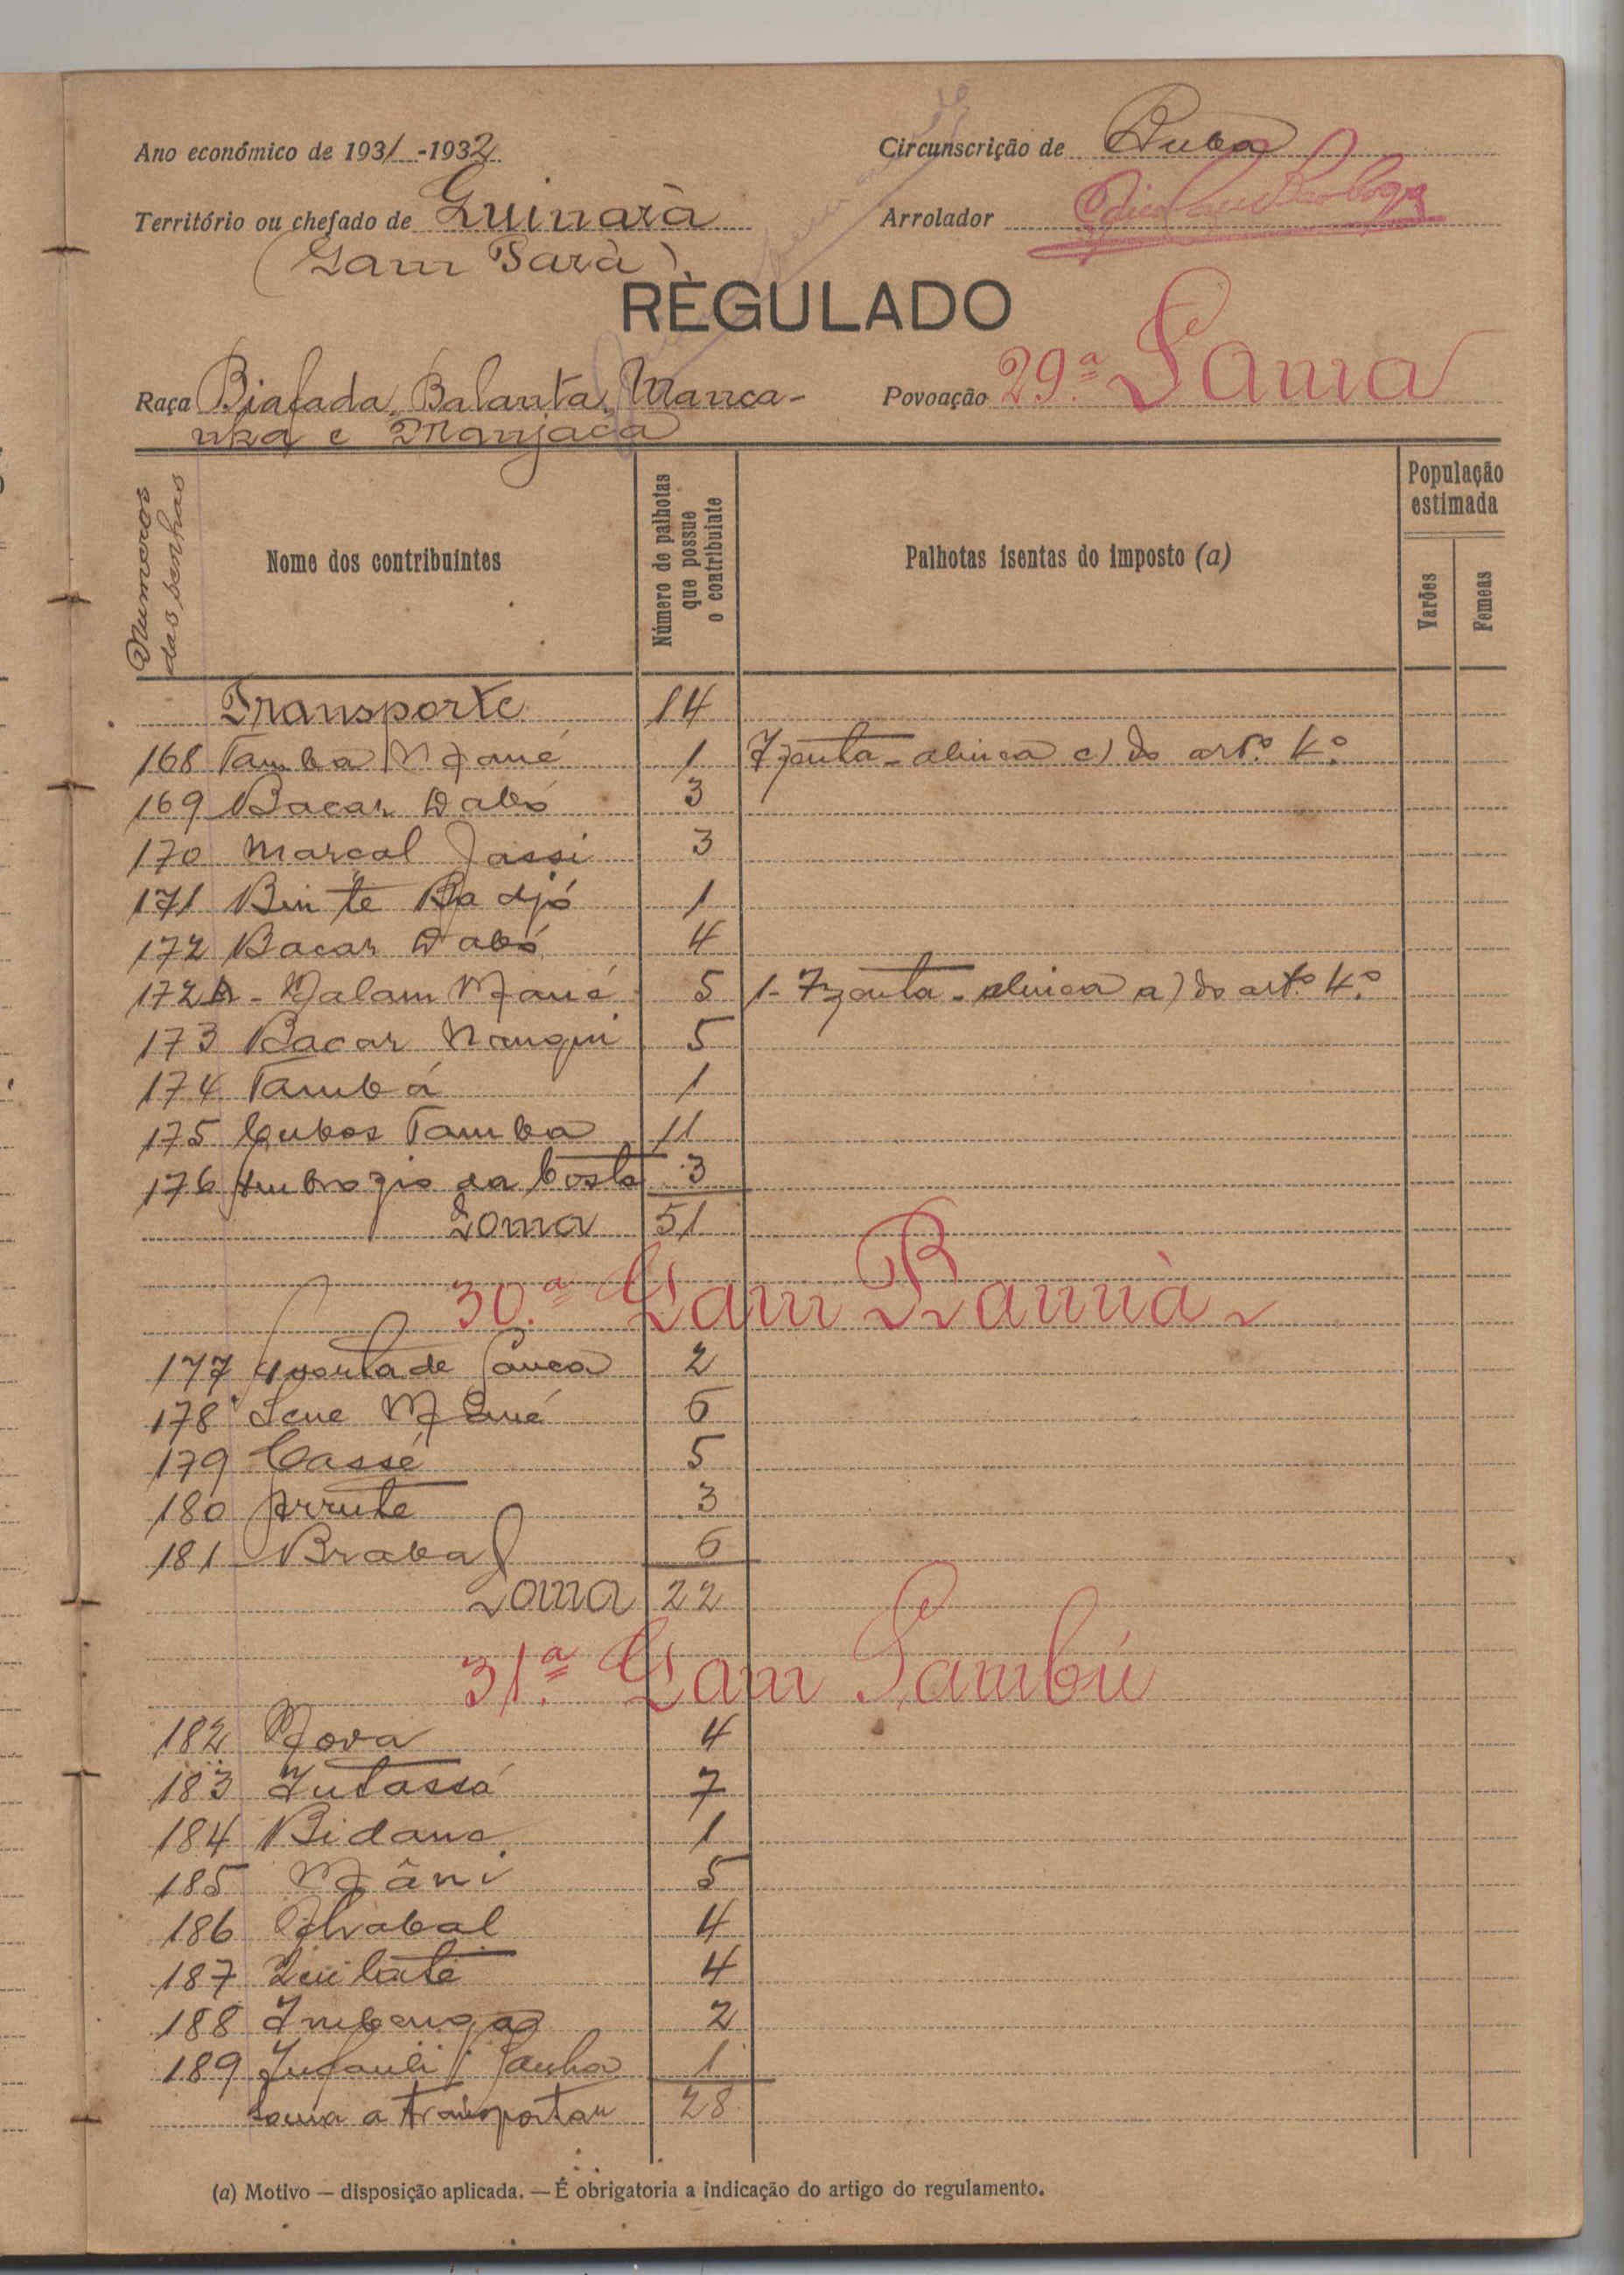 Ano económico de 1931-1932
Circunscrição de Buba
Território ou chefado de Guinarà
Arrolador
(Gam Parà)
REGULADO
Raça Biafada, Balanta, Manca-
nha e Manjaca
Povoação 29.ª Lama
Numeros das senhas
Nome dos contribuintes
Número de palhotas que possue o contribuinte
Palhotas isentas do imposto (a)
População estimada
Varões
Femeas
Transporte 14
168 Tamba Mané 1 Izenta - alinea c) do art.º 4.º
169 Bacar Dabó 3
170 Marçal Jassi 3
171 Binte Badjó 1
172 Bacar Dabó 4
172A - Malam Mané 5 1- Izenta - alinea a) do art.º 4.º
173 Bacar Nanqui 5
174 Tambá 1
175 Cubos Tamba 11
176 Ambrozio da Costa 3
Soma 51
30.ª Gam Bannà
177 Quontade 2
178 Mané 6
179 Cassé 5
180 Arrute 3
181 Braba 6
Soma 22
31.ª Gam Sambú
182 Nova 4
183 Intassá 7
184 Bidane 1
185 Mâni 5
186 4
187 4
188 2
189 1
Soma a transportar 28
(a) Motivo — disposição aplicada. — É obrigatoria a indicação do artigo do regulamento.